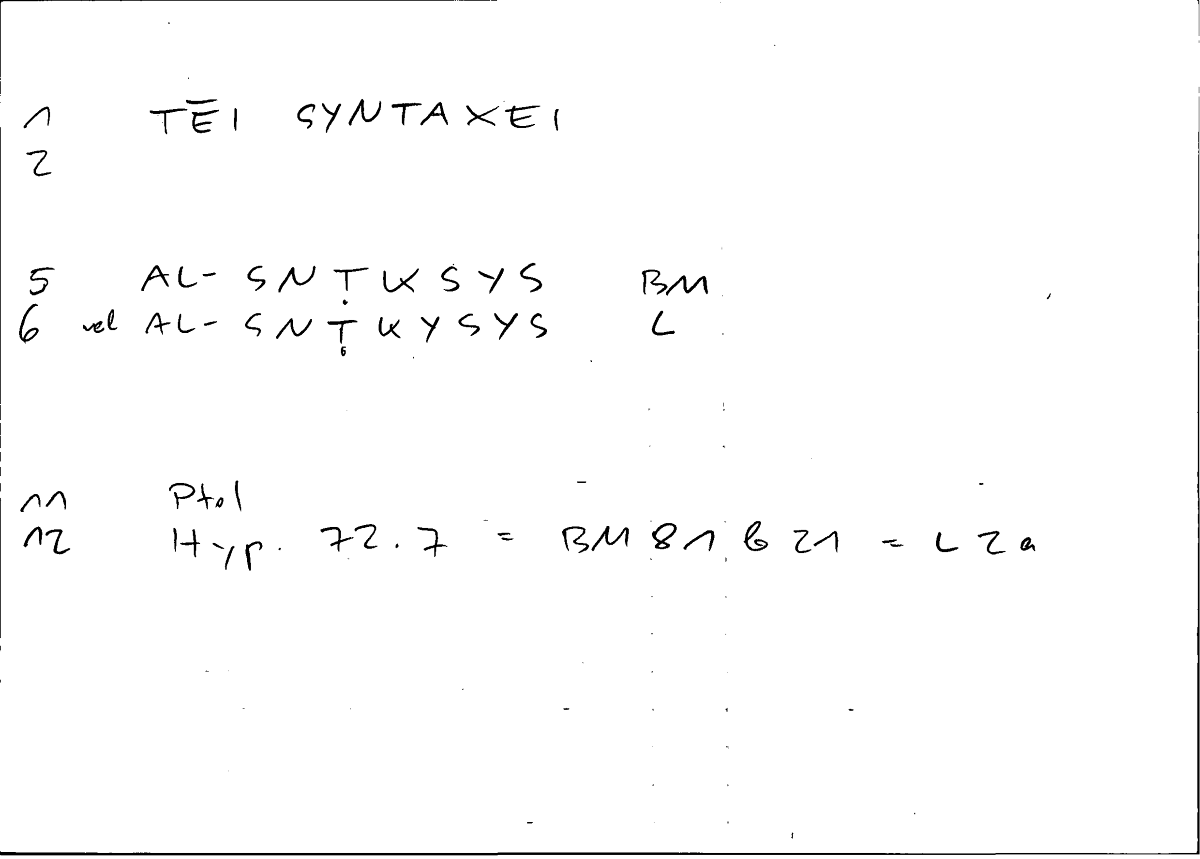 1 TĒI SYNTAXEI
2
5 AL- SNṬKSYS BM
6 vel AL- SNṬKYSYS L
11 Ptol
12 Hyp. 72.7 = BM 81 b 21 = L 2a